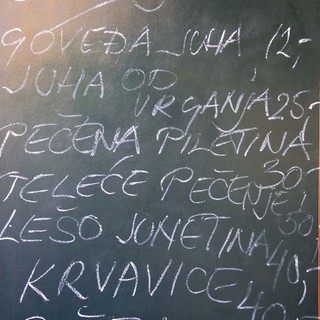 GOVEĐA JUHA 12,-
JUHA OD
VRGANJA 25,-
PEČENA PILETINA
30,-
TELEĆE PEČENJE
50
LESO JUNETINA 40,-
KRVAVICE 40,-